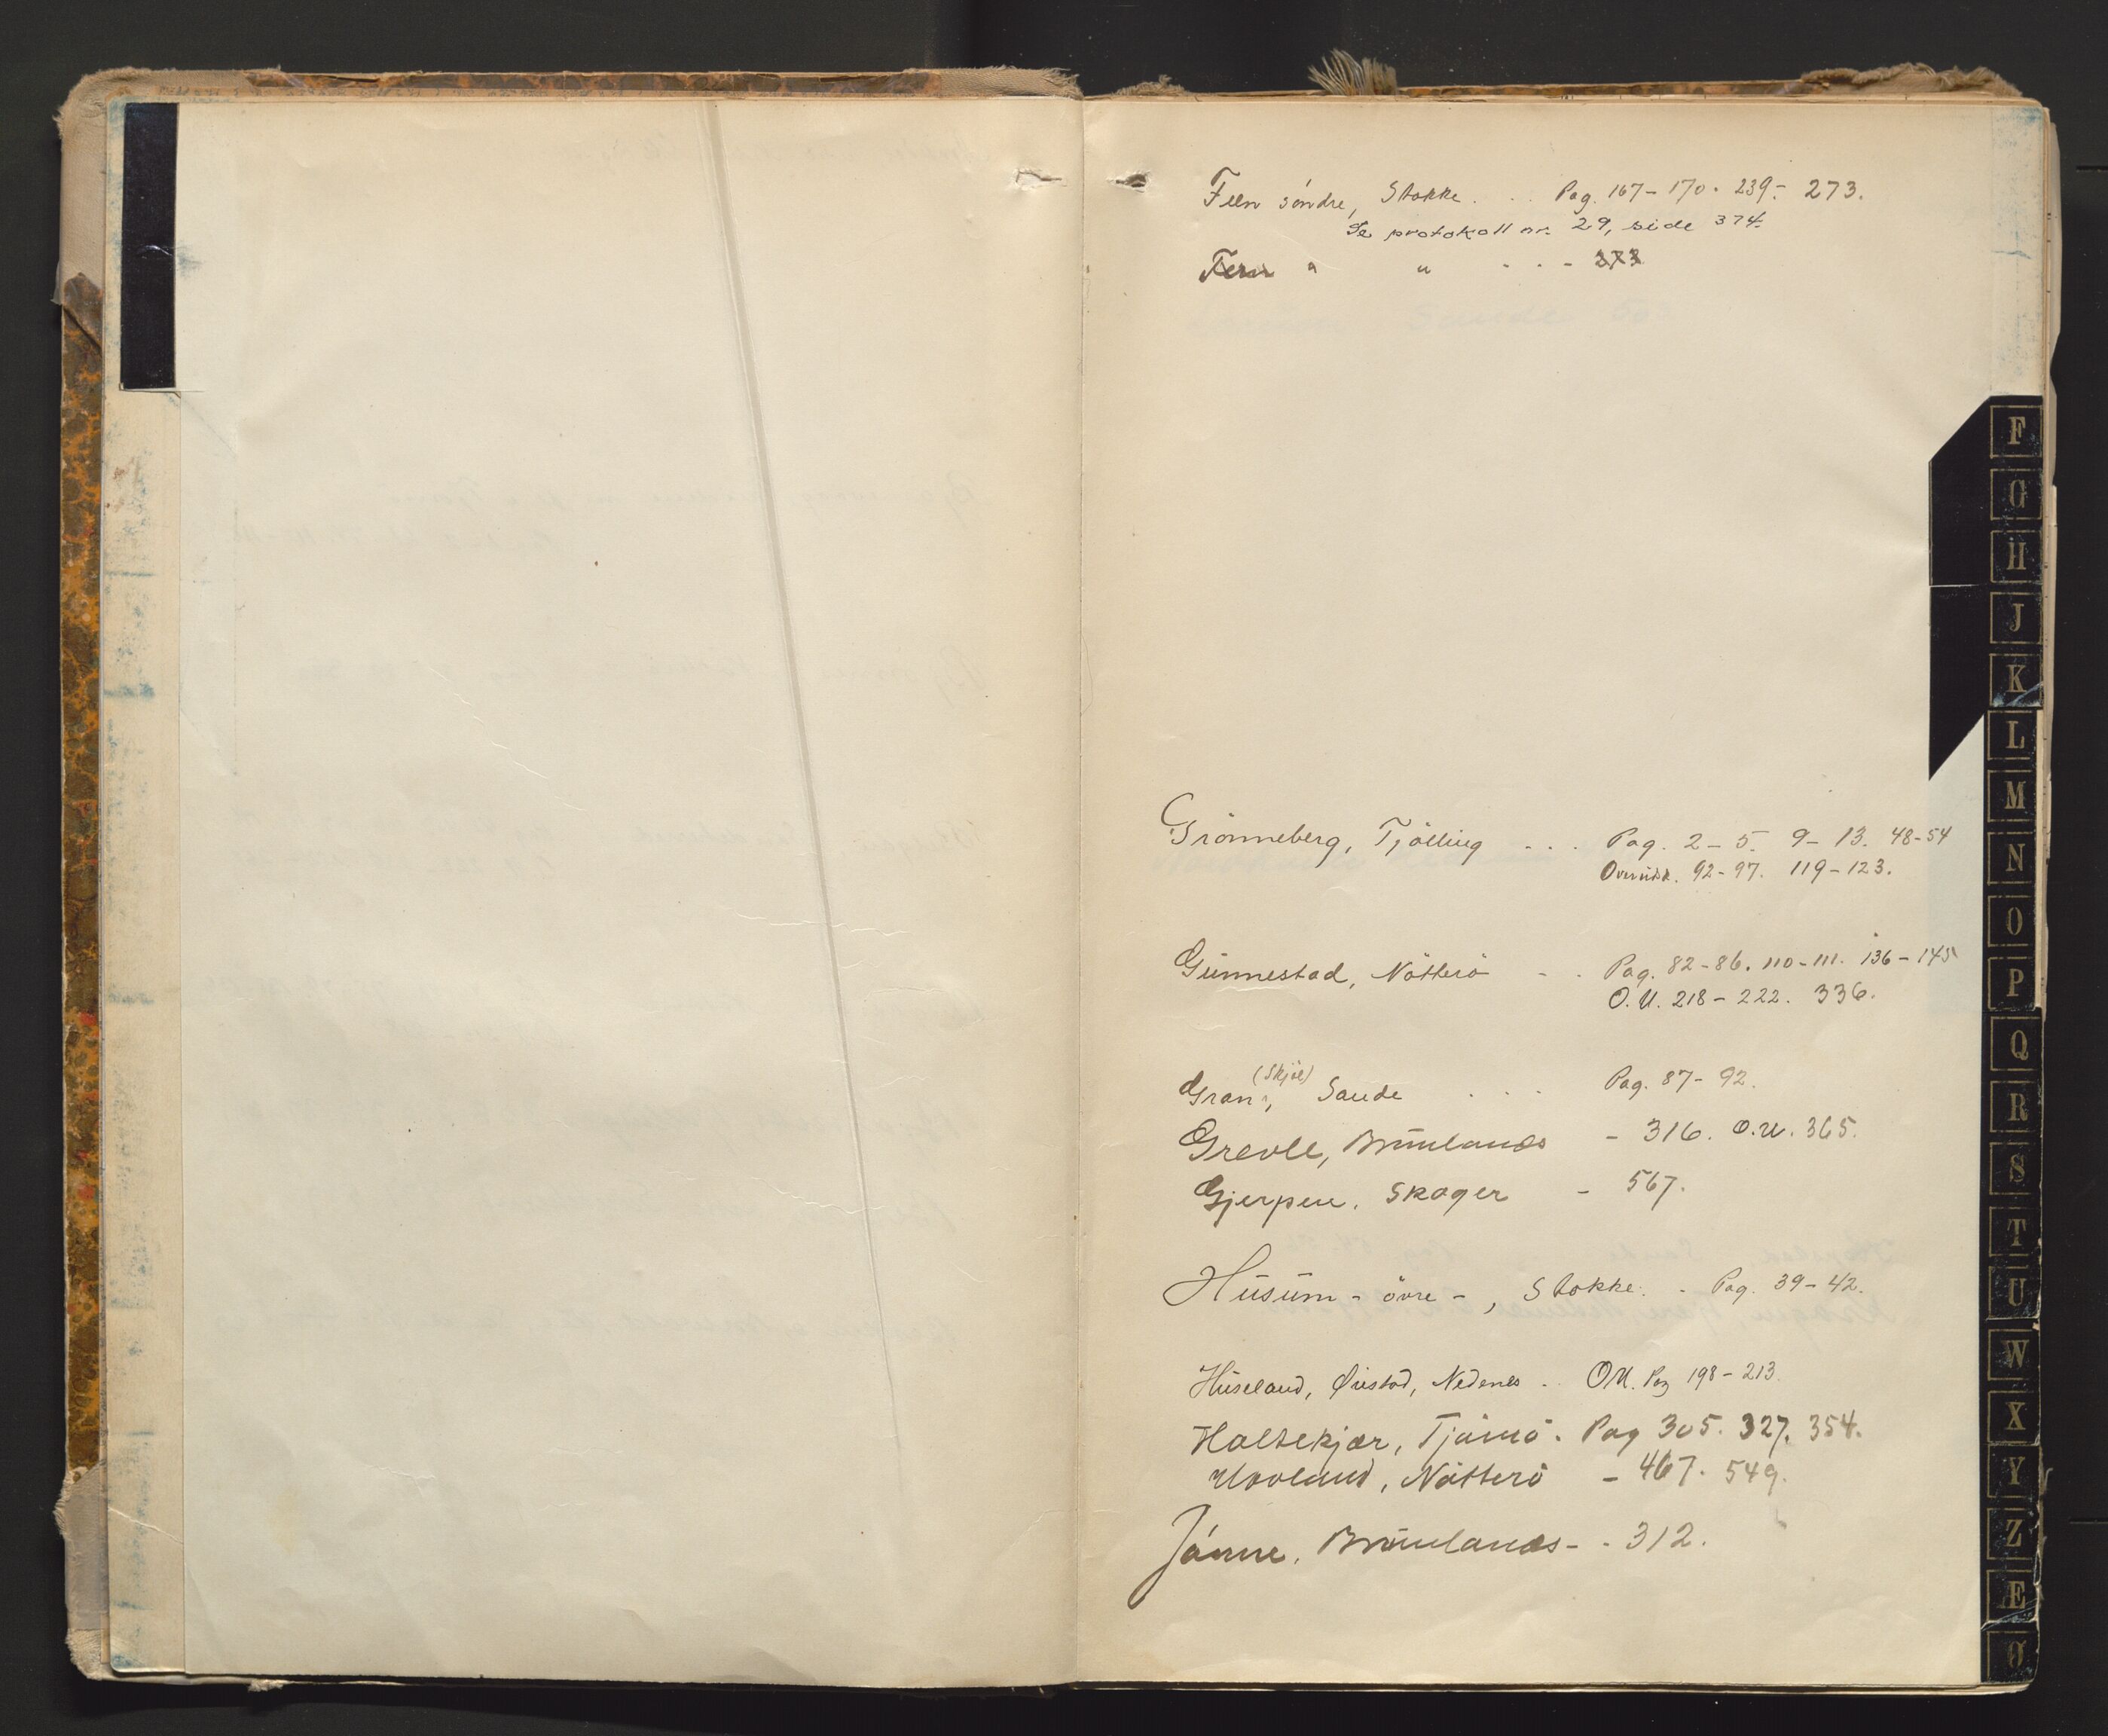 Feen söndre, Stokke . . . Pag. 167 - 170. 239. - 273.
Se protokoll nr. 29, side 374.
Feen " " - - - 273
Grönneberg, Tjölling . . . Pag. 2 - 5. 9 - 13. 48 - 54
Overudsk. 92 - 97. 119 - 123.
Gunnestad, Nötterö - . Pag. 82 - 86. 110 - 111. 136 - 145
O.U. 218 - 222. 336.
(Skjöl)
Gran, Sande . . . Pag. 87 - 92.
Grevle, Brunlanæs - 316. O.U. 365.
Gjerpen. Skoger - 567.
Husum - övre -, Stokke. - Pag. 39 - 42.
Huseland, Øiestad, Nedenes . . O.U. Pag 198 - 213.
Holtekjær, Tjömö. Pag 305. 327. 354.
Hovland, Nötterö - 467. 549.
Jónne. Brunlanæs - - 312.
F
G
H
J
K
L
M
N
O
P
Q
R
S
T
U
W
X
Y
Z
Æ
Ø